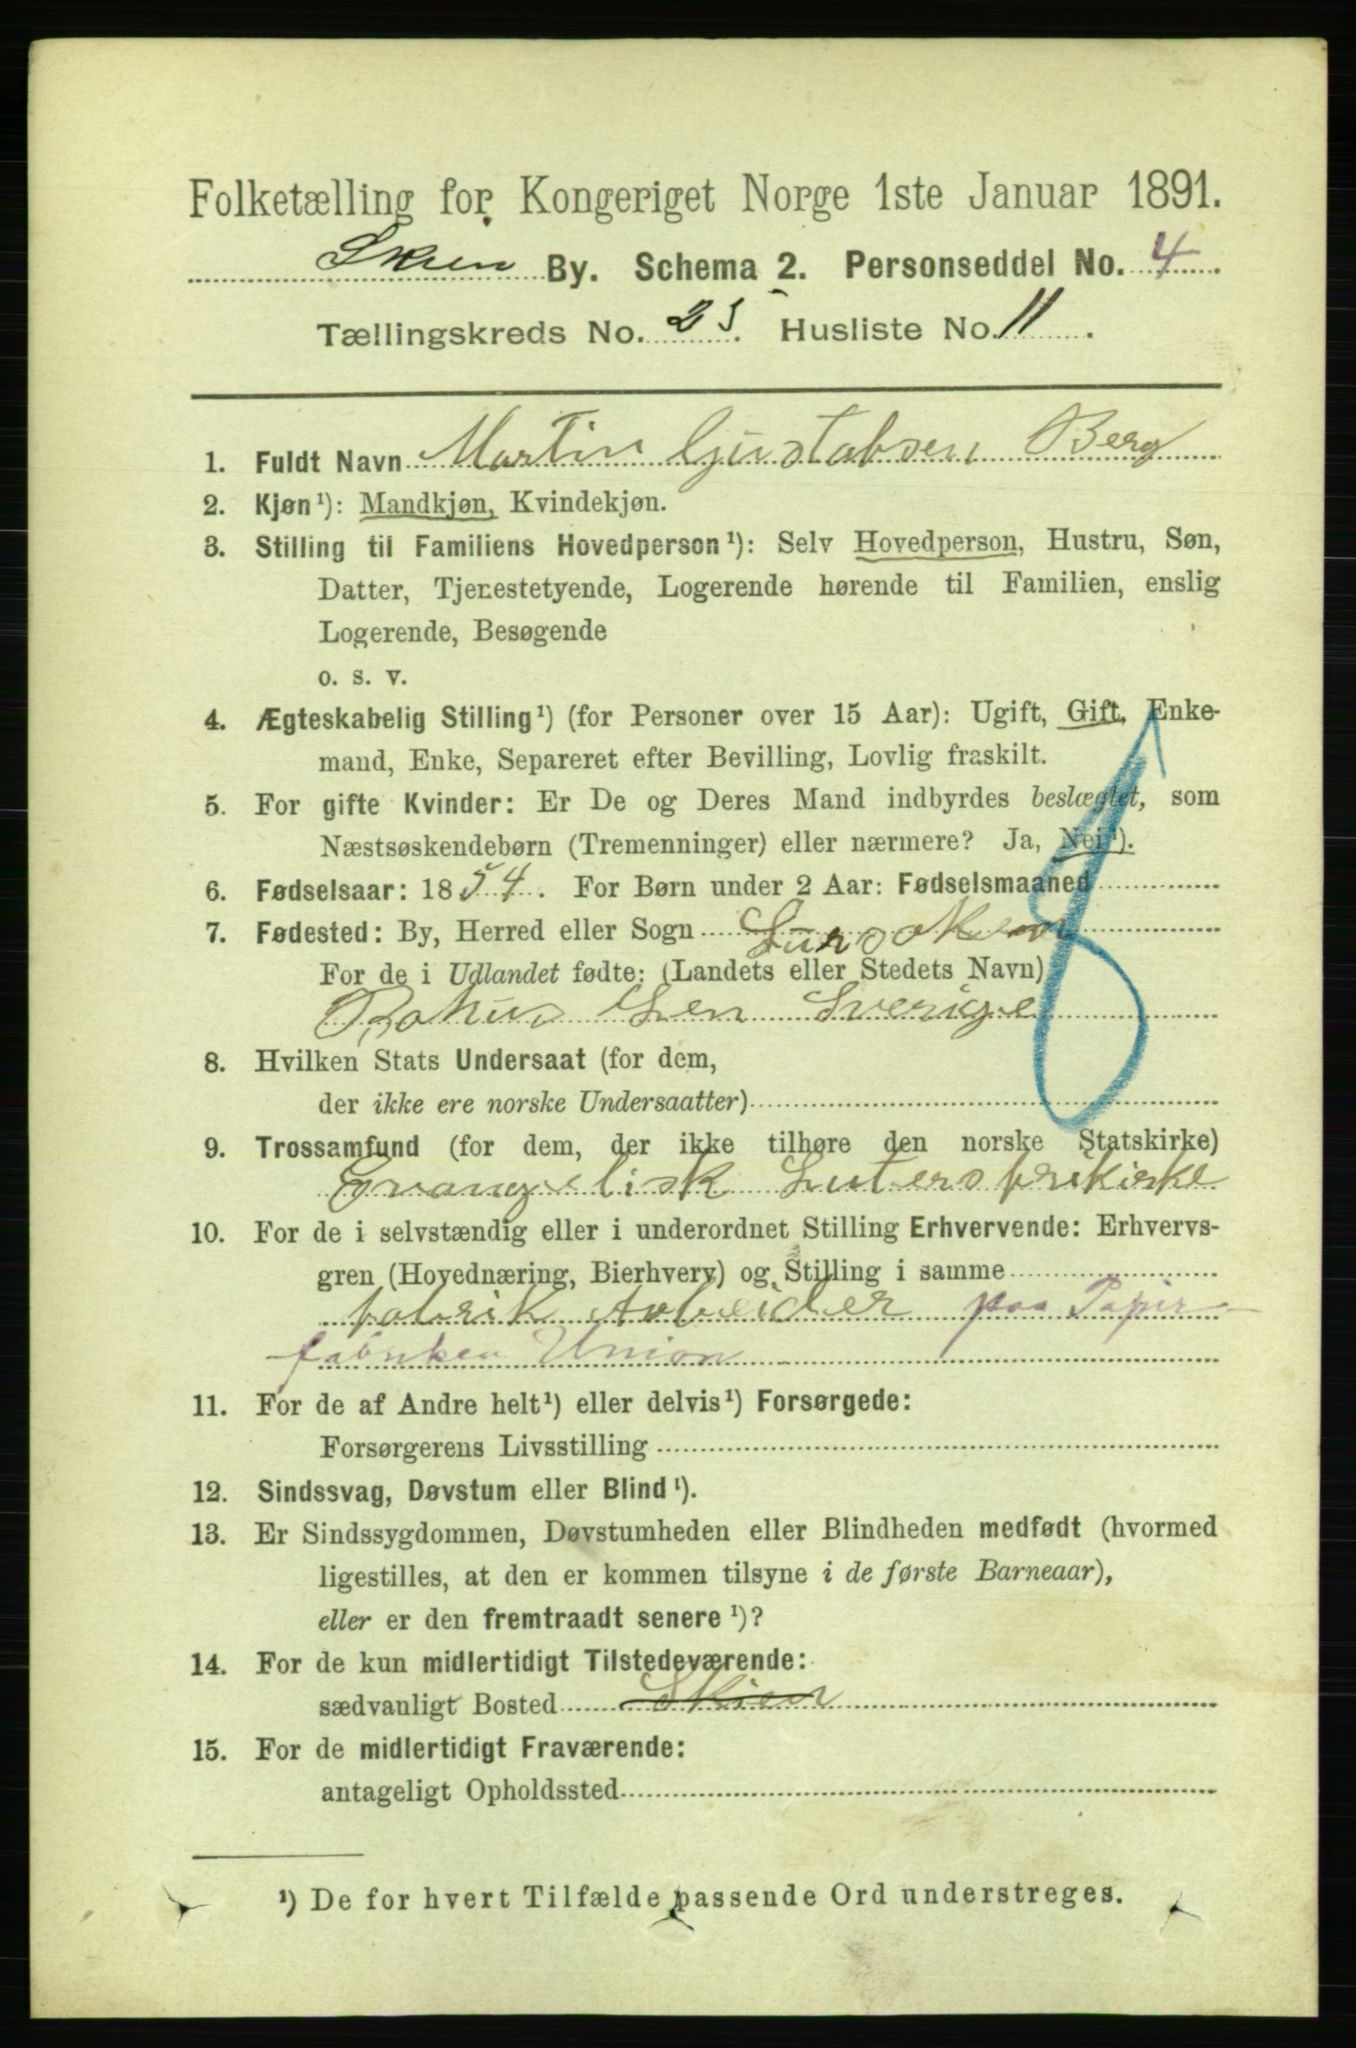 Folketælling for Kongeriget Norge 1ste Januar 1891.
Skien By. Schema 2. Personseddel No. 4
Tællingskreds No. 25. Husliste No. 11.
1. Fuldt Navn Martin Gustabsen Berg
2. Kjøn¹): Mandkjøn, Kvindekjøn.
3. Stilling til Familiens Hovedperson¹): Selv Hovedperson, Hustru, Søn,
Datter, Tjenestetyende, Logerende hørende til Familien, enslig
Logerende, Besøgende
o. s. v.
4. Ægteskabelig Stilling¹) (for Personer over 15 Aar): Ugift, Gift, Enke-
mand, Enke, Separeret efter Bevilling, Lovlig fraskilt.
5. For gifte Kvinder: Er De og Deres Mand indbyrdes beslægtet, som
Næstsøskendebørn (Tremenninger) eller nærmere? Ja, Nei¹).
6. Fødselsaar: 1854. For Børn under 2 Aar: Fødselsmaaned
7. Fødested: By, Herred eller Sogn
For de i Udlandet fødte: (Landets eller Stedets Navn)
Bohus Len Sverige
8. Hvilken Stats Undersaat (for dem,
der ikke ere norske Undersaatter)
9. Trossamfund (for dem, der ikke tilhøre den norske Statskirke)
Evangelisk Luters frikirke
10. For de i selvstændig eller i underordnet Stilling Erhvervende: Erhvervs-
gren (Hovednæring, Bierhverv) og Stilling i samme
fabrik Arbeider paa Papir-
fabriken Union
11. For de af Andre helt¹) eller delvis¹) Forsørgede:
Forsørgerens Livsstilling
12. Sindssvag, Døvstum eller Blind¹).
13. Er Sindssygdommen, Døvstumheden eller Blindheden medfødt (hvormed
ligestilles, at den er kommen tilsyne i de første Barneaar),
eller er den fremtraadt senere¹)?
14. For de kun midlertidigt Tilstedeværende:
sædvanligt Bosted Skien
15. For de midlertidigt Fraværende:
antageligt Opholdssted
¹) De for hvert Tilfælde passende Ord understreges.